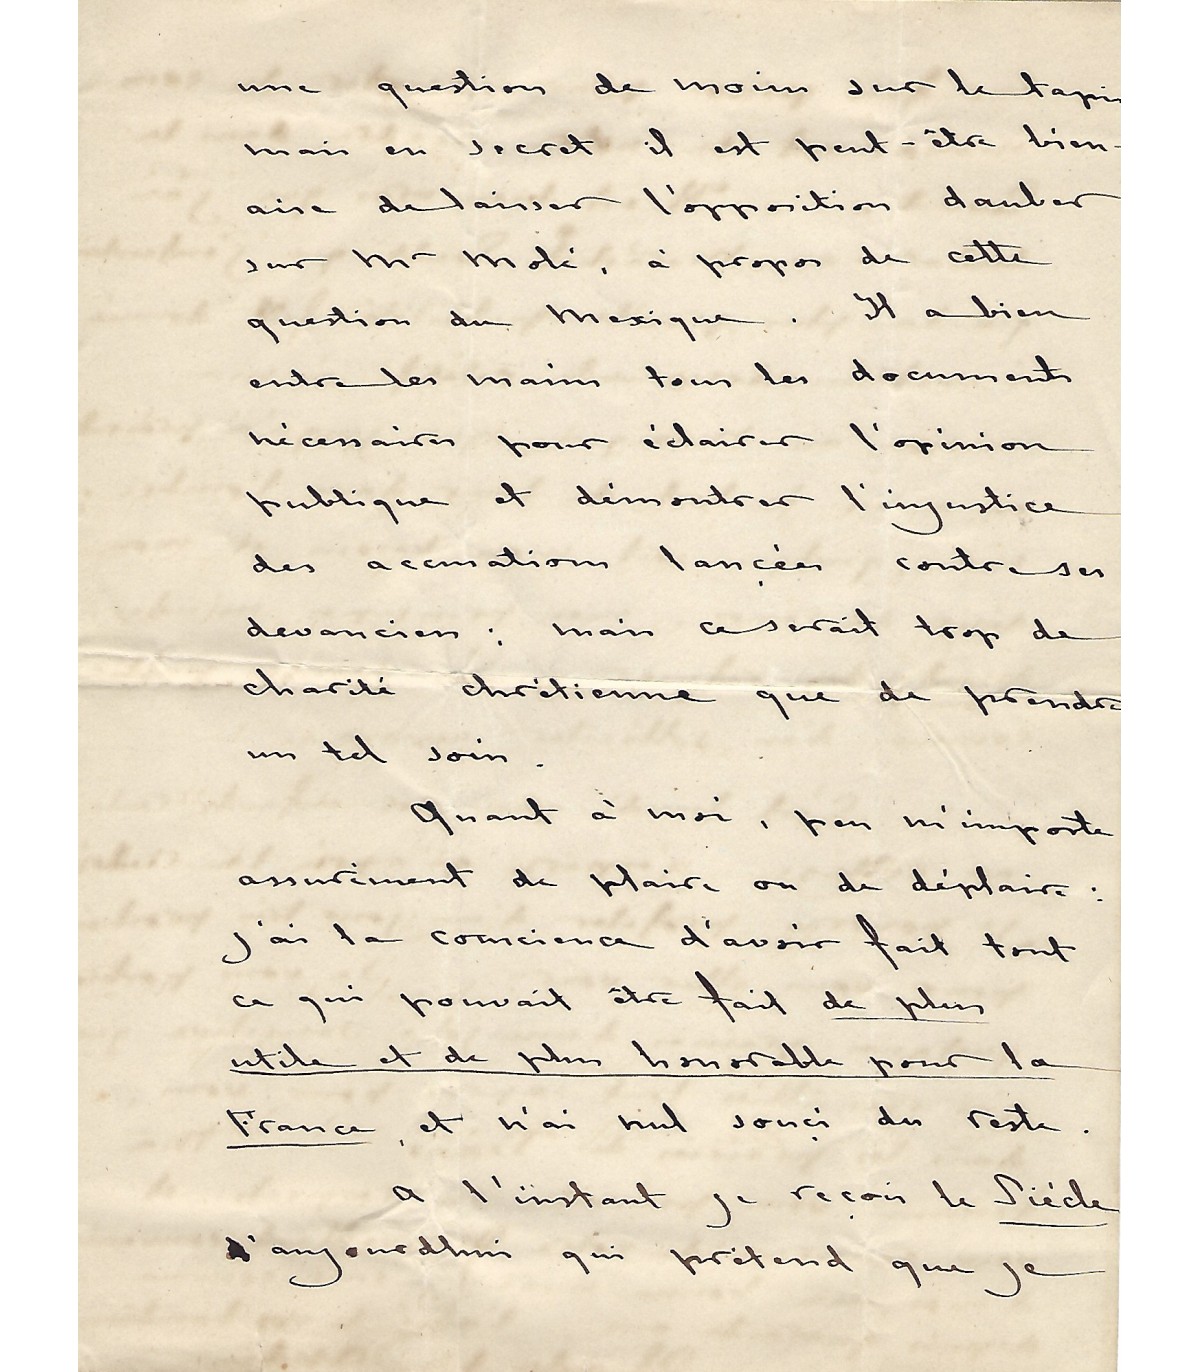 une question de moins sur le tapis
mais en secret il est peut-être bien-
aise de laisser l'opposition dauber
sur Mr Molé, à propos de cette
question du Mexique. Il a bien
entre les mains tous les documents
nécessaires pour éclairer l'opinion
publique et démontrer l'injustice
des accusations lancées contre ses
devanciers ; mais ce serait trop de
charité chrétienne que de prendre
un tel soin.
Quant à moi, peu m'importe
assurément de plaire ou de déplaire :
j'ai la conscience d'avoir fait tout
ce qui pouvait être fait de plus
utile et de plus honorable pour la
France, et n'ai nul souçi du reste.
A l'instant je reçois le Siécle
d'aujourdhui qui prétend que je